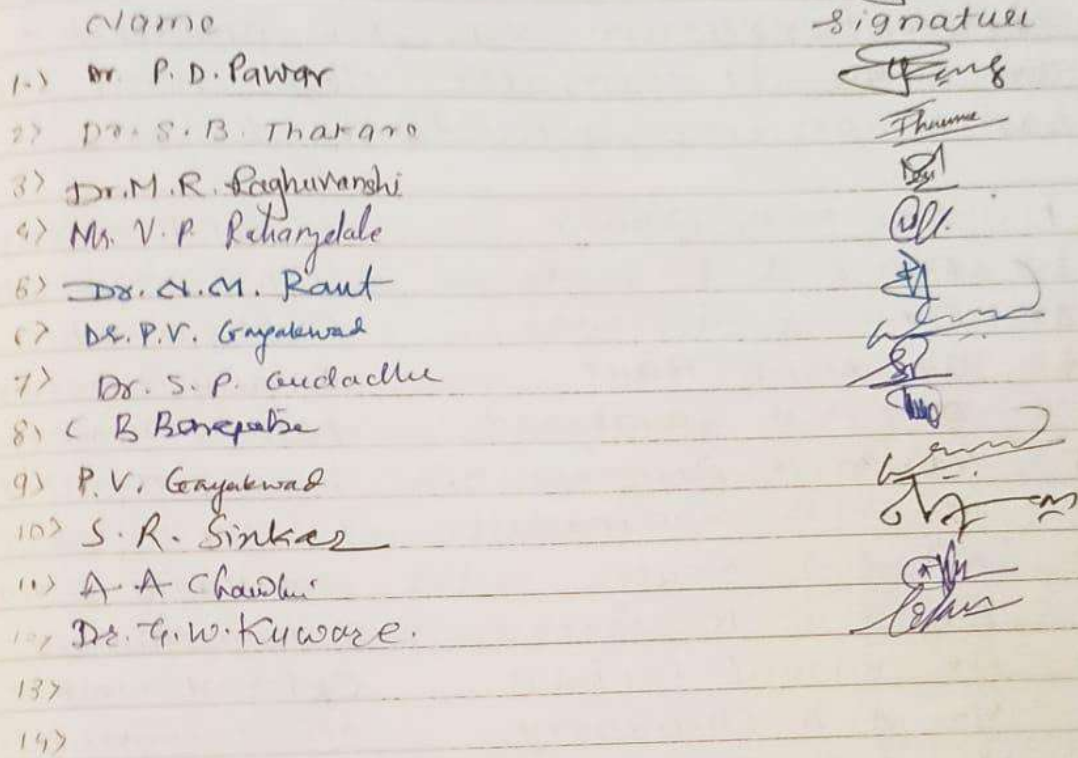 Name Signature
1.) Dr. P. D. Pawar
2) Dr. S. B. Thakare
3) Dr. M. R. Raghuvanshi
4) Mr. V. P. Rahangdale
5) Dr. N. M. Raut
6) Dr. P. V. Gayakwad
7) Dr. S. P.
8) C B
9) P. V. Gayakwad
10) S. R. Sinkar
11) A. A Chaudhri
12) Dr. G. W. Kuware.
13)
14)